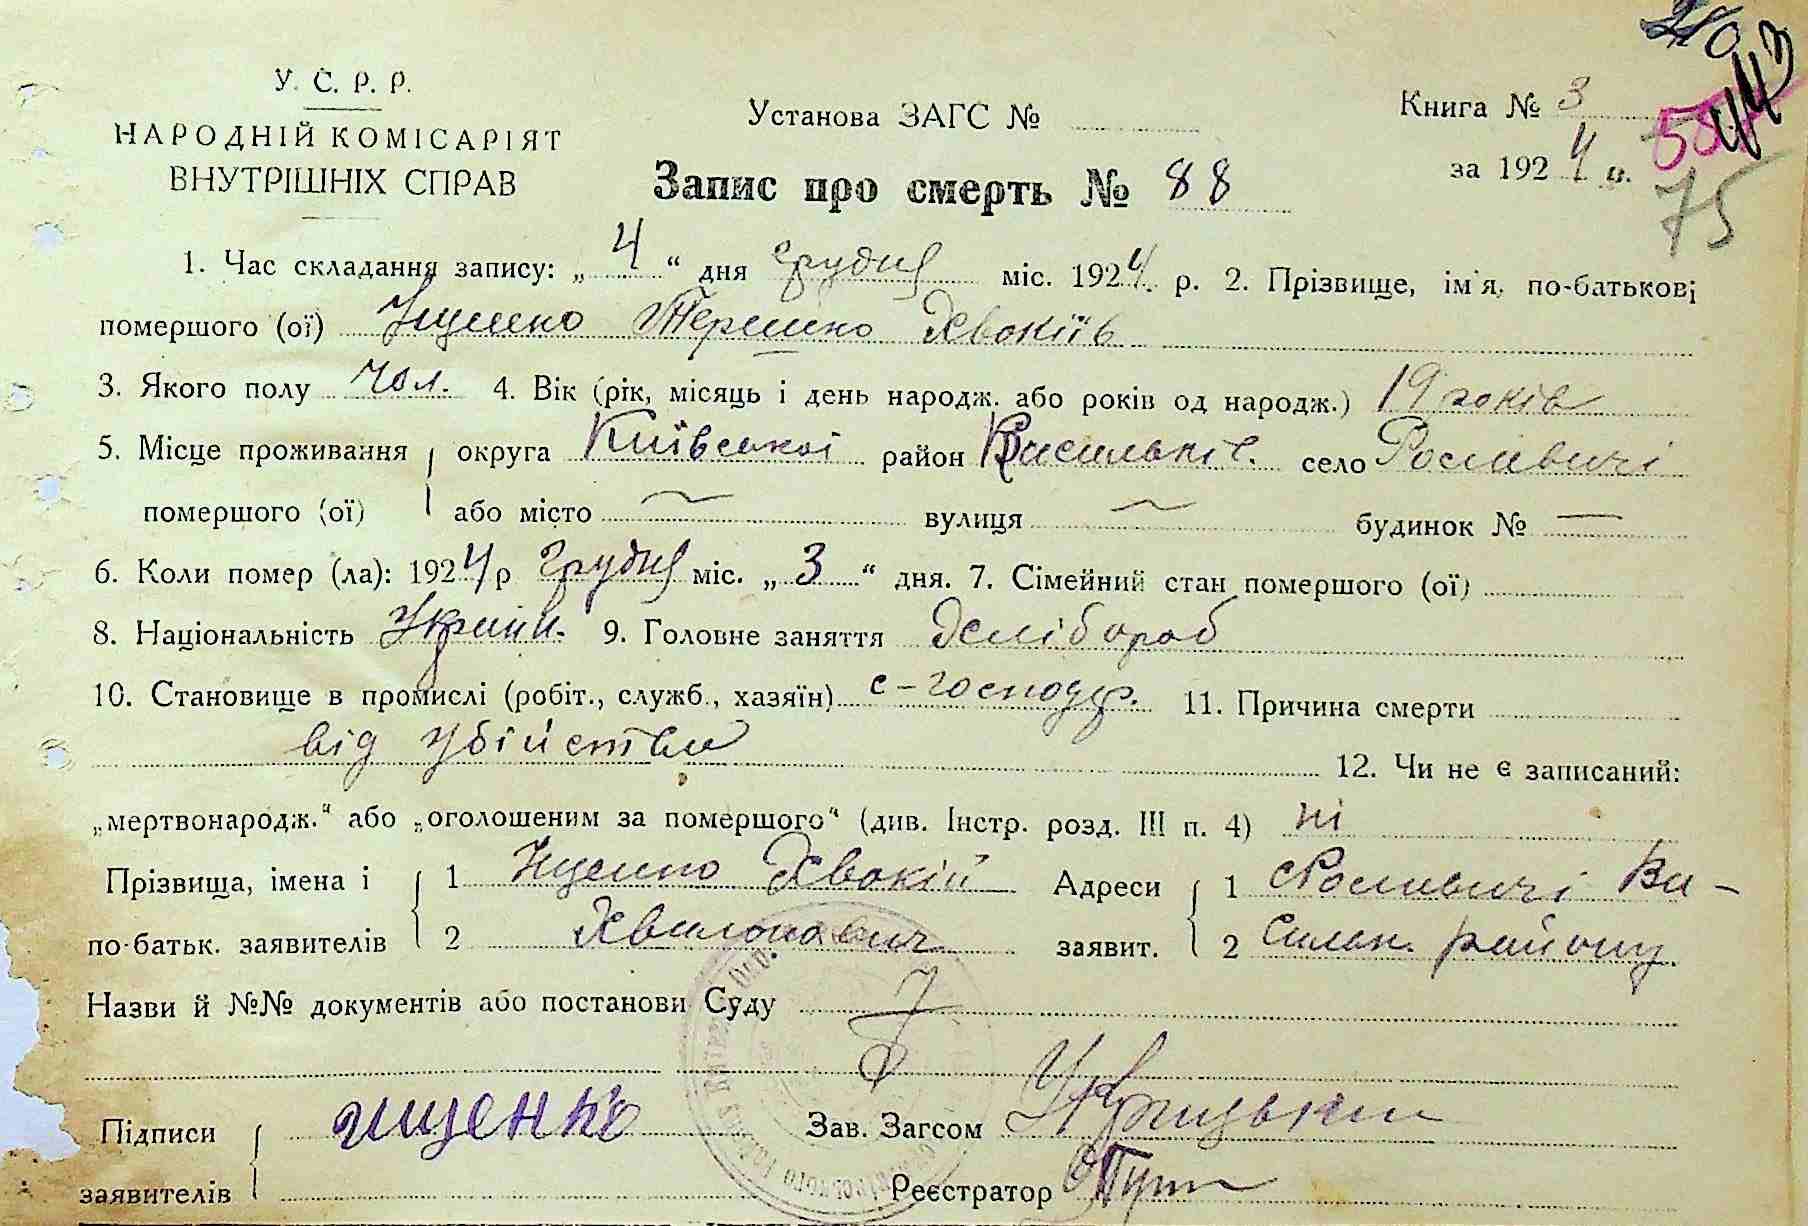 40
443
У. С. Р. Р.
НАРОДНІЙ КОМІСАРІЯТ
ВНУТРІШНІХ СПРАВ
Установа ЗАГС №
Книга № 3
за 1924 р.
75
Запис про смерть № 88
1. Час складання запису: „4“ дня грудня міс. 1924 р. 2. Прізвище, ім'я, по-батькові
помершого (ої) Іщенко Терешко Явокіїв
3. Якого полу чол. 4. Вік (рік, місяць і день народж. або років од народж.) 19 років
5. Місце проживання округа Київської район Васильків. село Рославичі
помершого (ої) або місто ~ вулиця ~ будинок № —
6. Коли помер (ла): 1924 р грудня міс. „3“ дня. 7. Сімейний стан помершого (ої)
8. Національність Україн. 9. Головне заняття хлібороб
10. Становище в промислі (робіт., служб., хазяїн) с-господар. 11. Причина смерти
від убійства 12. Чи не є записаний:
„мертвонародж.“ або „оголошеним за помершого“ (див. Інстр. розд. III п. 4) ні
Прізвища, імена і 1 Іщенко Явокій Адреси 1 с Рославичі Ва-
по-батьк. заявителів 2 заявит. 2 сильк. району
Назви й №№ документів або постанови Суду
Підписи іщенко Зав. Загсом
заявителів Реєстратор